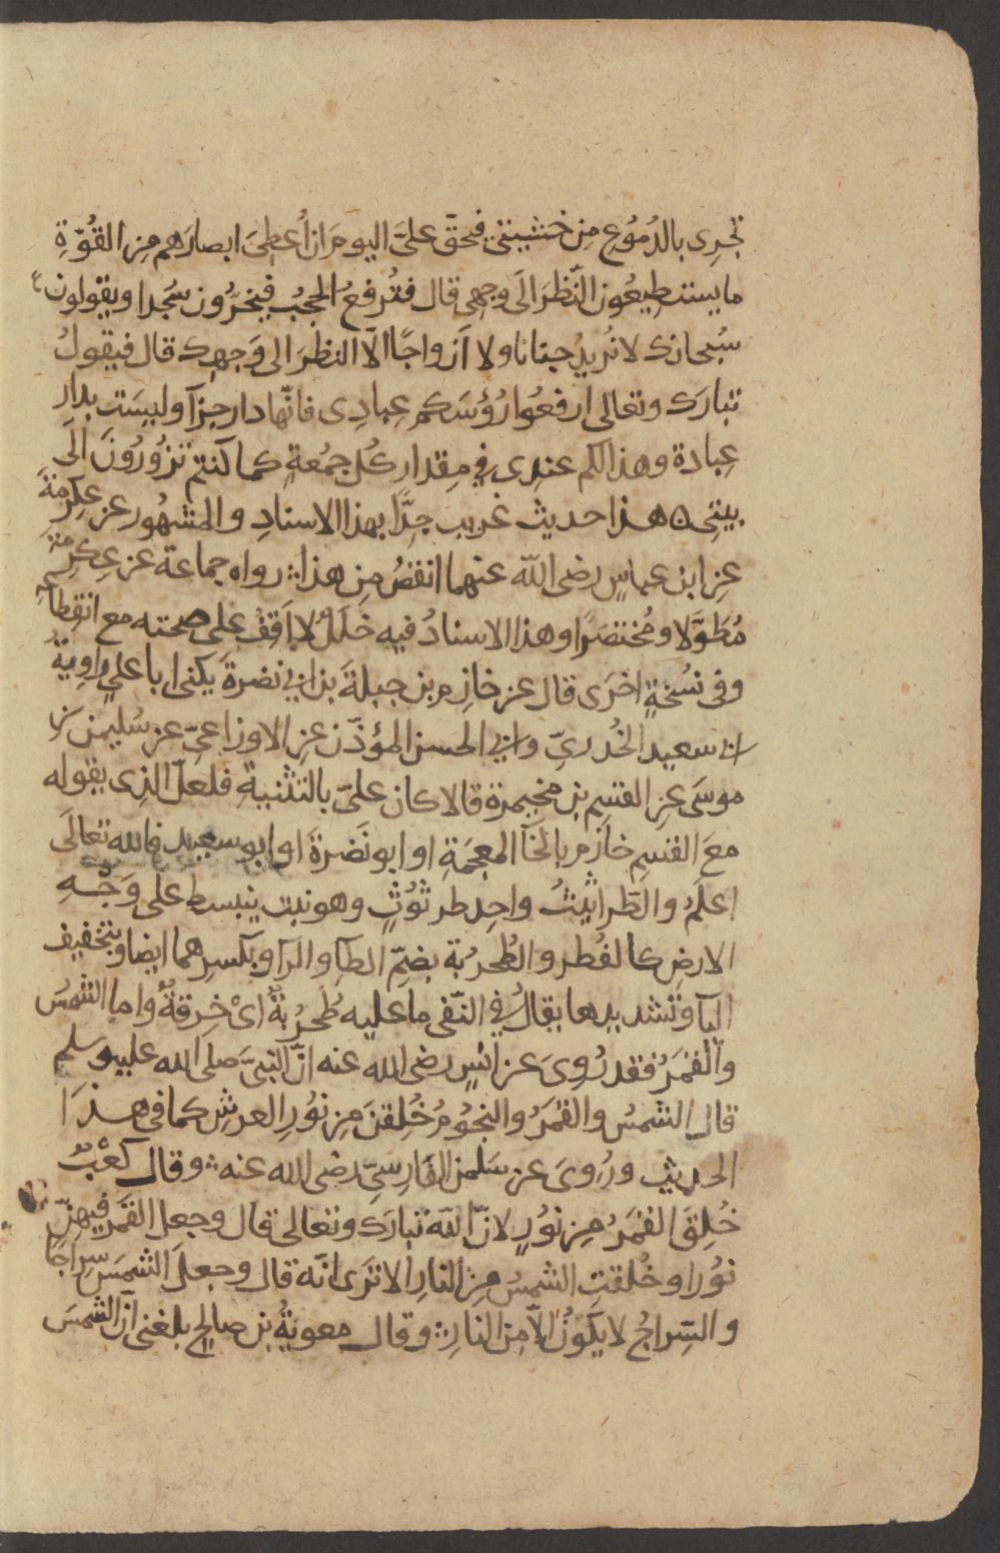 تجرى بالدُمُوع مِن خشيتى فحقّ علىَّ اليومَ ان اُعطِىَ ابصارَهم مِن القُوّةِ
ما يستطِيعُون النّظرَ الَى وجهى قال فتُرفعُ الحجُبُ فيخرُّون سُجدا ويقولون
سُبحانك لا نُريدُ جنانا ولا اَزواجًا الّا النظرَ الى وَجهِك قال فيقولُ
تبارَك وتعالى ارفعُوا رُؤسَكم عِبادِى فانّها دار جزآ وليسَت بدارِ
عِبادة وهذا لكم عندى فى مِقدار كُل جمُعةٍ كما كنتم تزُورُونَ الَى
بيتِى ه هذا حديث غريب جِدًّا بهذا الاسنادِ والمشهُور عن عِكرِمَةَ
عنِ ابن عباسٍ رضى الله عنهما انقصُ مِن هذا رواه جماعة عن عِكرِمَةَ
مُطوَّلا ومُختصَرًا وهذا الاسنادُ فيه خَلَلٌ لا اَقِفُ على صحته مع انقِطاعٍ
وفى نسُخةٍ اخرَى قال عن خازِم بن جبلةَ بن ابى نضرةَ يكنى ابا علىٍ راوِيةُ
ابى سعيد الخُدرىِّ وابى الحسن المؤذّن عنِ الاوزاعىّ عن سُليمن بن
موسَى عنِ القسِمِ بن مخيمرة قالا كان علىّ بالتثنيةِ فلعلّ الذِى يقوله
معَ القسِمِ خازم بالخآ المعجَمَةِ او ابو نَضرةَ او ابو سعيد فالله تعالَى
اعلمُ والطّراثيثُ واحِد طرثُوثٍ وهو نبت ينبسط على وَجْهِ
الارضِ كالفُطر والطُحرُبة بضمّ الطآ والرآ وبكسرهما ايضا وبتخفيف
البآ وتشديدها يقالُ فى النّفى ما عليه طُحرُبةٌ اىْ خِرقةٌ واما الشمسُ
والقمَرُ فقد رُوِىَ عن انسٍ رضى الله عنه انّ النبىَّ صلى الله عليه وسلم
قال الشمسُ والقمَرُ والنجُومُ خُلِقنَ مِن نوُرِ العرشِ كما فى هذا
الحديثِ ورُوِىَ عن سَلمن الفارسِىّ رضى الله عنه وقال كعْبٌ
خُلِقَ القمَرُ مِن نوُرٍ لانّ الله تبارَك وتعالى قال وجعل القمَر فيهِنّ
نوُرا وخُلقتِ الشمسُ مِن النارِ الا ترَى انّه قال وجعلَ الشمسَ سِراجًا
والسِّراجُ لا يكوُنُ الّا مِن النارِ وقال معوِيةُ بن صالحٍ بلغنى انّ الشمسَ